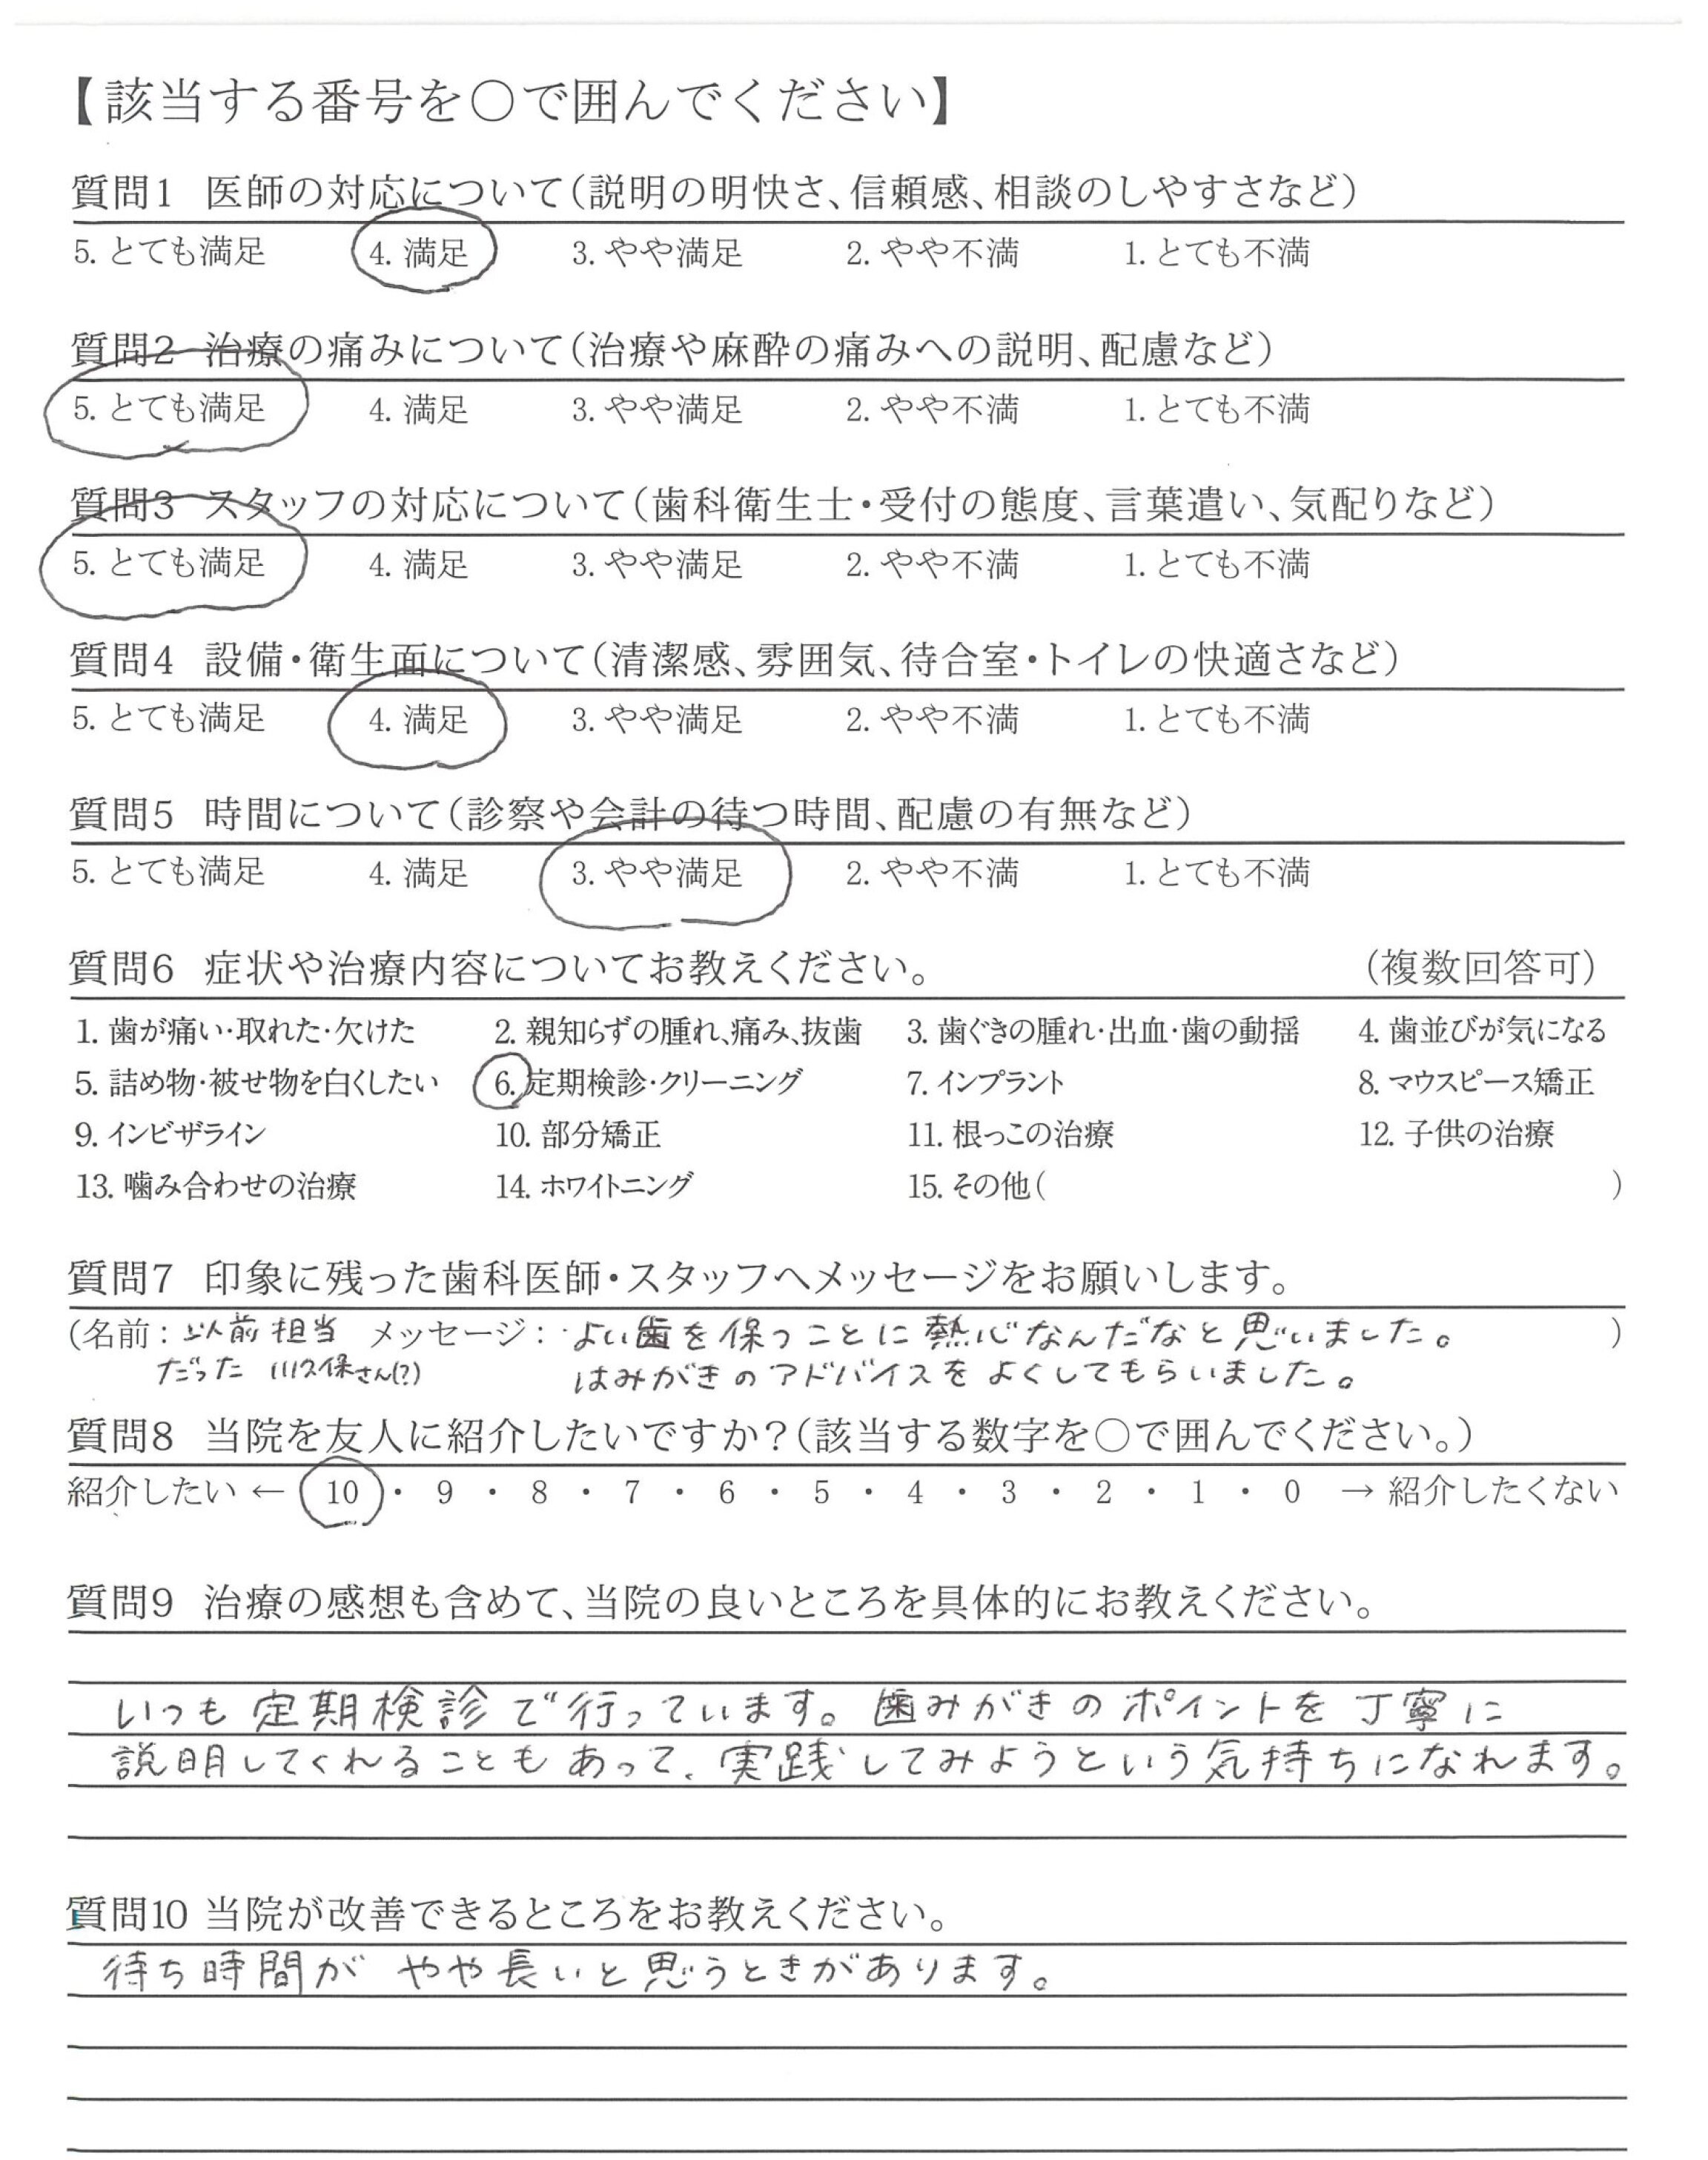 【該当する番号を○で囲んでください】
質問1 医師の対応について(説明の明快さ、信頼感、相談のしやすさなど)
5. とても満足 4. 満足 3. やや満足 2. やや不満 1. とても不満
質問2 治療の痛みについて(治療や麻酔の痛みへの説明、配慮など)
5. とても満足 4. 満足 3. やや満足 2. やや不満 1. とても不満
質問3 スタッフの対応について(歯科衛生士・受付の態度、言葉遣い、気配りなど)
5. とても満足 4. 満足 3. やや満足 2. やや不満 1. とても不満
質問4 設備・衛生面について(清潔感、雰囲気、待合室・トイレの快適さなど)
5. とても満足 4. 満足 3. やや満足 2. やや不満 1. とても不満
質問5 時間について(診察や会計の待つ時間、配慮の有無など)
5. とても満足 4. 満足 3. やや満足 2. やや不満 1. とても不満
質問6 症状や治療内容についてお教えください。 (複数回答可)
1. 歯が痛い・取れた・欠けた 2. 親知らずの腫れ、痛み、抜歯 3. 歯ぐきの腫れ・出血・歯の動揺 4. 歯並びが気になる
5. 詰め物・被せ物を白くしたい 6. 定期検診・クリーニング 7. インプラント 8. マウスピース矯正
9. インビザライン 10. 部分矯正 11. 根っこの治療 12. 子供の治療
13. 噛み合わせの治療 14. ホワイトニング 15. その他( )
質問7 印象に残った歯科医師・スタッフへメッセージをお願いします。
(名前: 以前担当 メッセージ: よい歯を保つことに熱心なんだなと思いました。 )
だった 川久保さん(?) はみがきのアドバイスをよくしてもらいました。
質問8 当院を友人に紹介したいですか?(該当する数字を○で囲んでください。)
紹介したい ← 10 ・ 9 ・ 8 ・ 7 ・ 6 ・ 5 ・ 4 ・ 3 ・ 2 ・ 1 ・ 0 → 紹介したくない
質問9 治療の感想も含めて、当院の良いところを具体的にお教えください。
いつも定期検診で行っています。歯みがきのポイントを丁寧に
説明してくれることもあって、実践してみようという気持ちになれます。
質問10 当院が改善できるところをお教えください。
待ち時間がやや長いと思うときがあります。